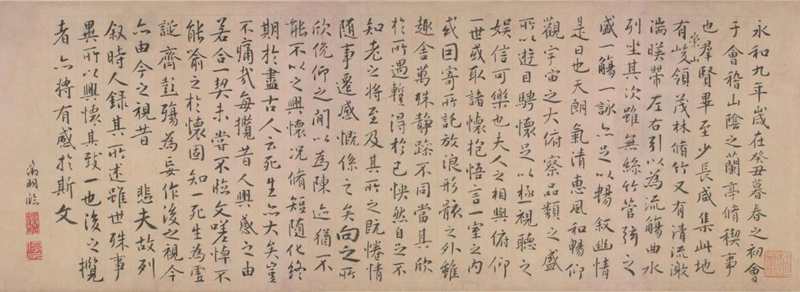 永和九年歲在癸丑暮春之初會
于會稽山陰之蘭亭脩稧事
也羣賢畢至少長咸集此地
崇山
有峻領茂林脩竹又有清流激
湍暎帶左右引以為流觴曲水
列坐其次雖無絲竹管弦之
盛一觴一詠亦足以暢叙幽情
是日也天朗氣清惠風和暢仰
觀宇宙之大俯察品類之盛
所以遊目騁懷足以極視聽之
娛信可樂也夫人之相與俯仰
一世或取諸懷抱悟言一室之內
或因寄所託放浪形骸之外雖
趣舍萬殊静躁不同當其欣
於所遇蹔得於己怏然自足不
知老之將至及其所之既惓情
隨事遷感慨係之矣向之所
欣俛仰之間以為陳迹猶不
能不以之興懷況脩短隨化終
期於盡古人云死生亦大矣豈
不痛哉每攬昔人興感之由
若合一契未嘗不臨文嗟悼不
能喻之於懷固知一死生為虛
誕齊彭殤為妄作後之視今
亦由今之視昔 悲夫故列
叙時人錄其所述雖世殊事
異所以興懷其致一也後之攬
者亦將有感於斯文
徵明臨